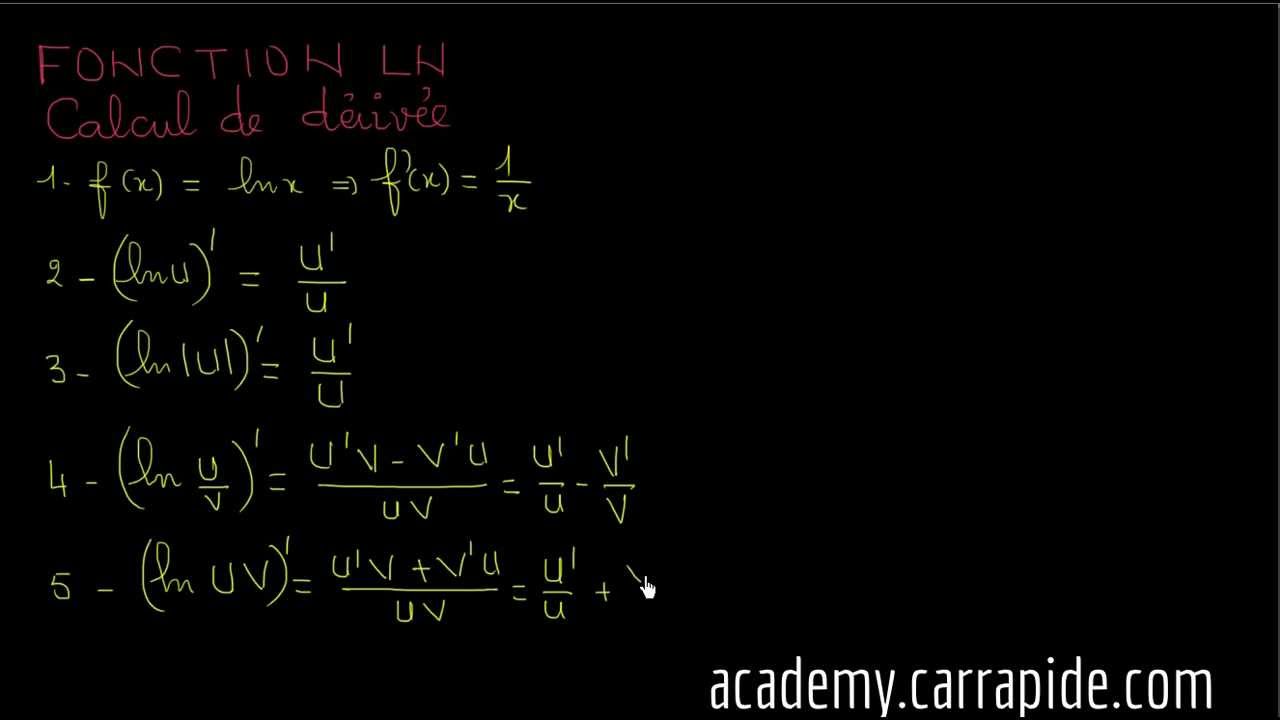 FONCTION LN
Calcul de dérivée
1- f(x) = ln x ⇒ f'(x) = 1/x
2 - (ln U)' = U'/U
3 - (ln |U|)' = U'/U
4 - (ln U/V)' = U'V - V'U / UV = U'/U - V'/V
5 - (ln UV)' = U'V + V'U / UV = U'/U +
academy.carrapide.com